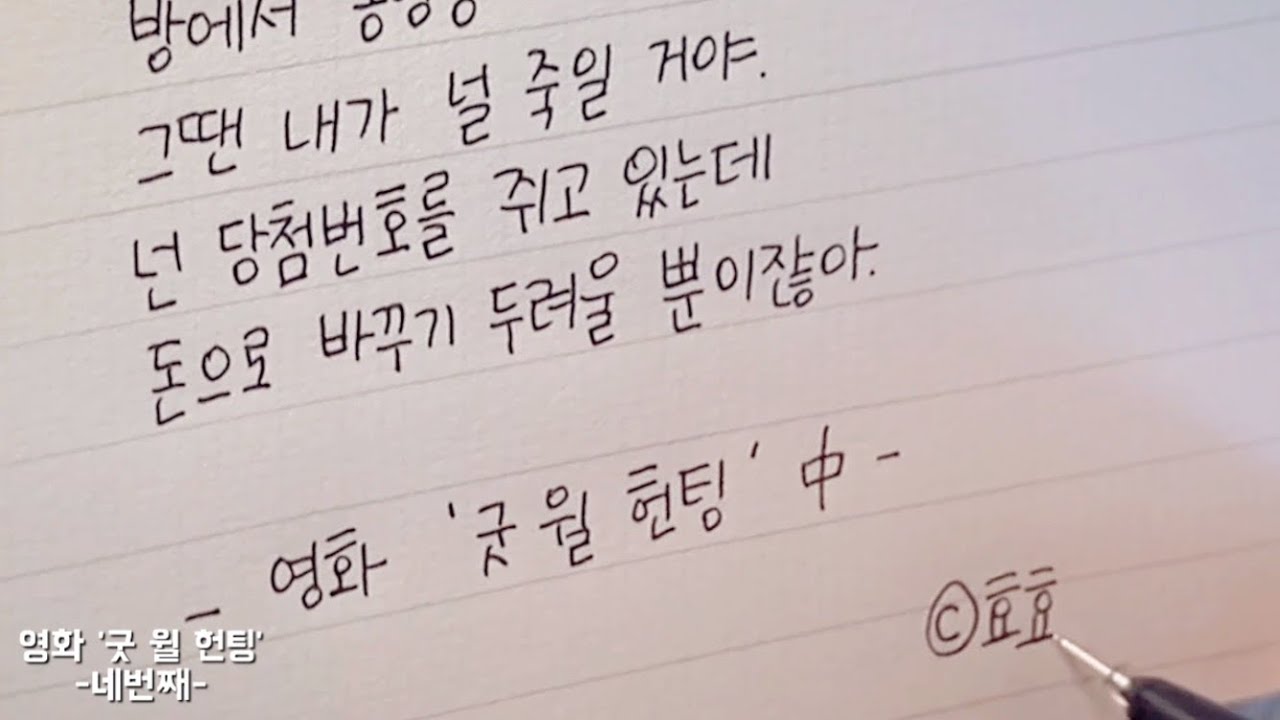 방에서
그땐 내가 널 죽일 거야.
넌 당첨번호를 쥐고 있는데
돈으로 바꾸기 두려울 뿐이잖아.
- 영화 '굿 윌 헌팅' 中 -
ⓒ효효
영화 '굿 윌 헌팅'
-네번째-